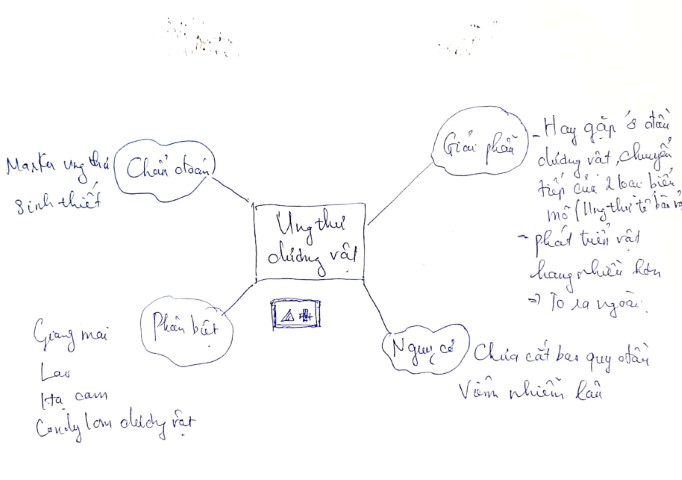 Ung thư
dương vật
Chẩn đoán
Marker ung thư
Sinh thiết
Giải phẫu
- Hay gặp ở đầu
dương vật, chuyển
tiếp của 2 loại biểu
mô (Ung thư tế bào
- phát triển vật
hang nhiều hơn
=> To ra ngoài
Phân biệt
Giang mai
Lao
Hạ cam
Condylom dương vật
Nguy cơ
Chưa cắt bao quy đầu
Viêm nhiễm lâu